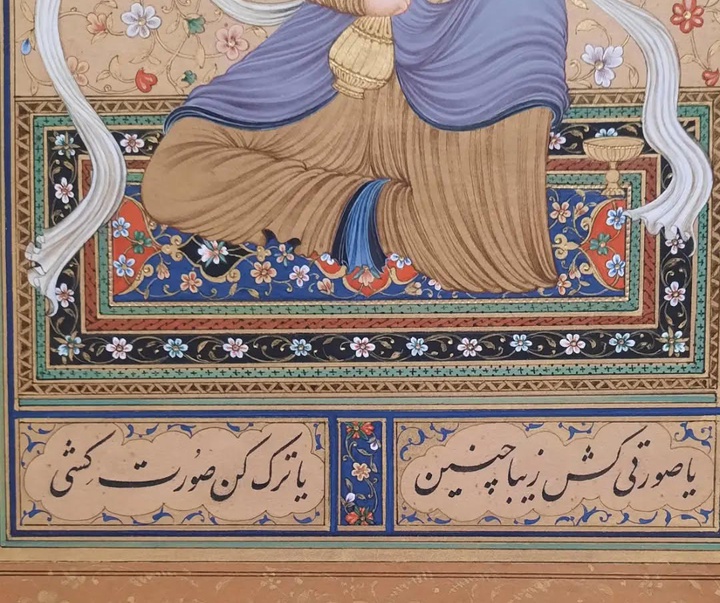 یا صورتی کش زیبا چنین
یا ترک کن صُورت کِشی